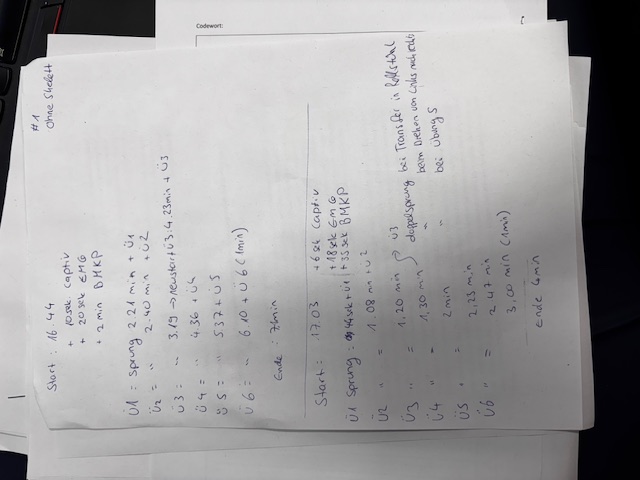 #1
Ohne Skelett
Start : 16.44
+ 10sek Captiv
+ 20sek EMG
+ 2min BMKP
Ü1 = Sprung 2.21 min + Ü1
Ü2 = " 2.40 min + Ü2
Ü3 = " 3.19 → neustart Ü3: 4.23min + Ü3
Ü4 = " 4.36 + Ü4
Ü5 = " 5.37 + Ü5
Ü6 = " 6.10 + Ü6 (1min)
Ende : 7.1min
Start : 17.03 + 6sek Captiv
+ 18sek EMG
Ü1 Sprung : 44sek + Ü1 + 35sek BMKP
Ü2 " = 1.08 min + Ü2
Ü3 " = 1,20 min Ü3
Ü4 " = 1,30 min doppelsprung bei Transfer in Rollstuhl
" beim Drehen von Links nach rechts
Ü5 " = 2min " bei Übung 5
2,23 min
Ü6 " = 2 47 min
3,00 min (1min)
Ende 4min
Codewort: